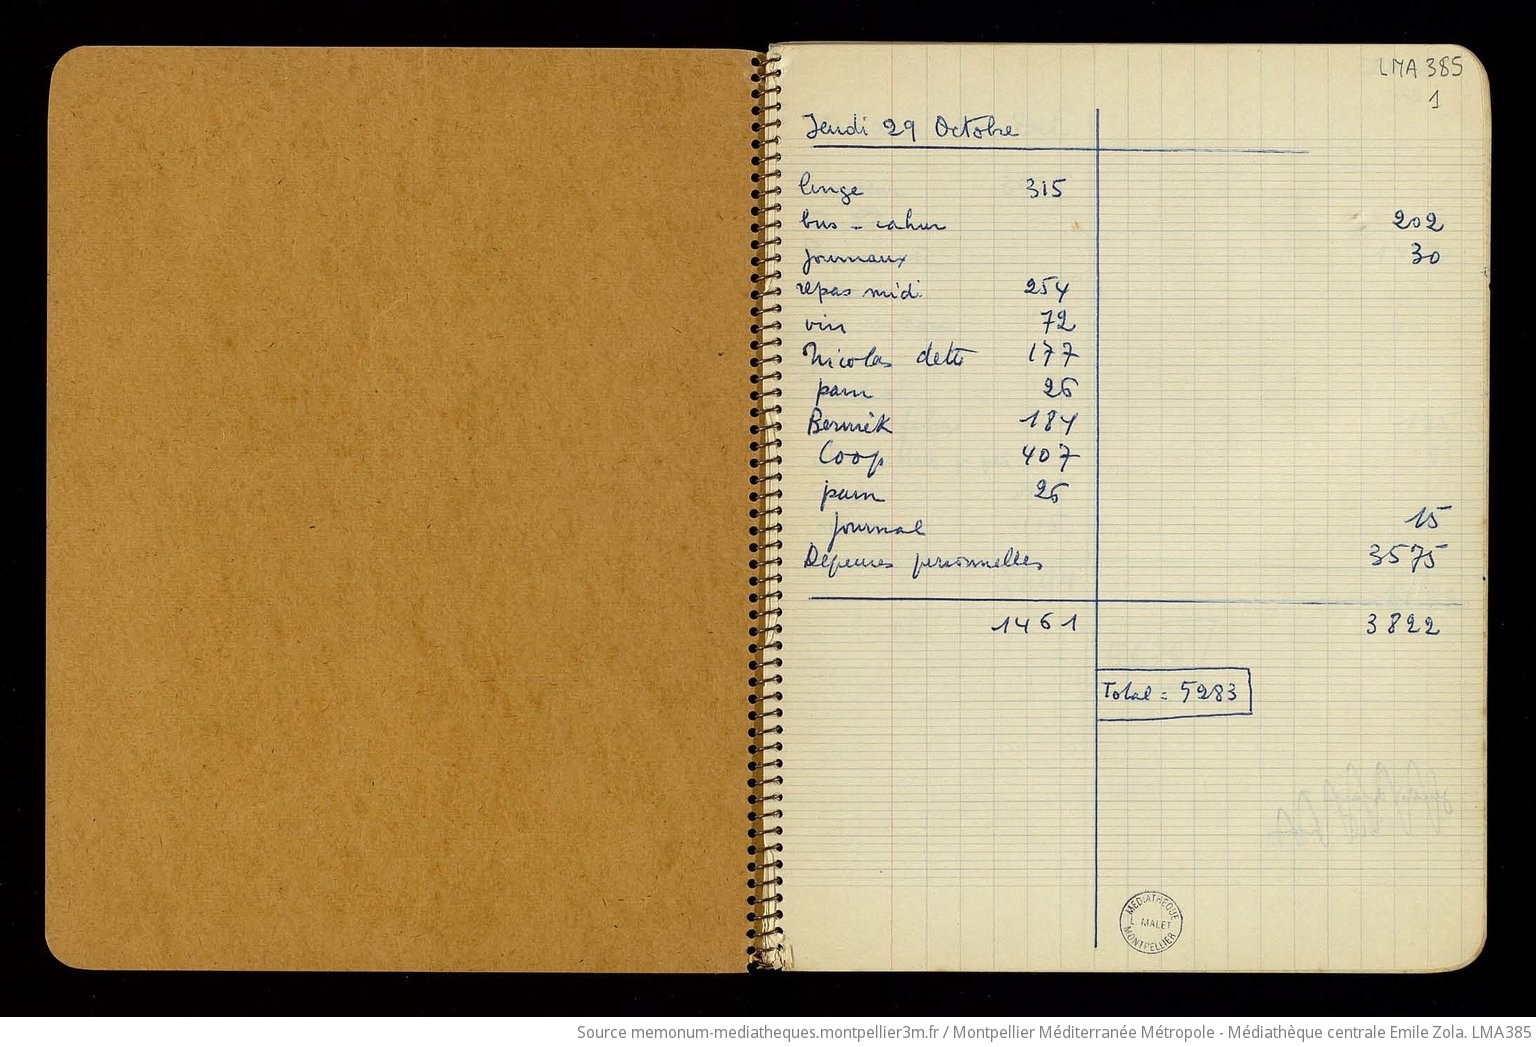 LMA 385
1
Jeudi 29 Octobre
linge 315
bus - cahier 202
journaux 30
repas midi 254
vin 72
Nicolas dette 177
pain 26
Bermek 184
Coop 407
pain 26
journal 15
Dépenses personnelles 3575
1461 3822
Total = 5283
MEDIATHEQUE
L. MALET
MONTPELLIER
Source memonum-mediatheques.montpellier3m.fr / Montpellier Méditerranée Métropole - Médiathèque centrale Emile Zola. LMA385